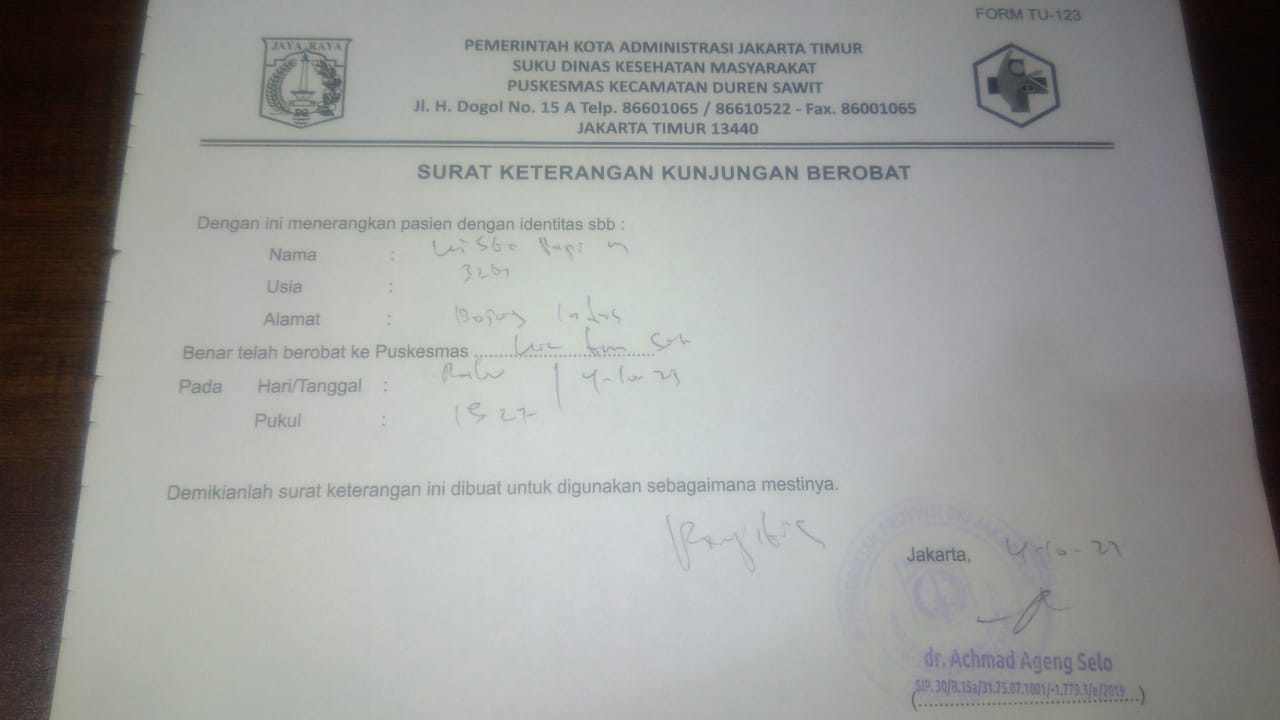 FORM TU-123
JAYA RAYA
PEMERINTAH KOTA ADMINISTRASI JAKARTA TIMUR
SUKU DINAS KESEHATAN MASYARAKAT
PUSKESMAS KECAMATAN DUREN SAWIT
Jl. H. Dogol No. 15 A Telp. 86601065 / 86610522 - Fax. 86001065
JAKARTA TIMUR 13440
SURAT KETERANGAN KUNJUNGAN BEROBAT
Dengan ini menerangkan pasien dengan identitas sbb :
Nama :
Usia :
Alamat :
Benar telah berobat ke Puskesmas ..............................
Pada Hari/Tanggal : Rabu / 4-10-23
Pukul : 15 27
Demikianlah surat keterangan ini dibuat untuk digunakan sebagaimana mestinya.
Jakarta, 4-10-23
dr. Achmad Ageng Selo
SIP. 30/B.15a/31.75.07.1001/-1.779.3/e/2019